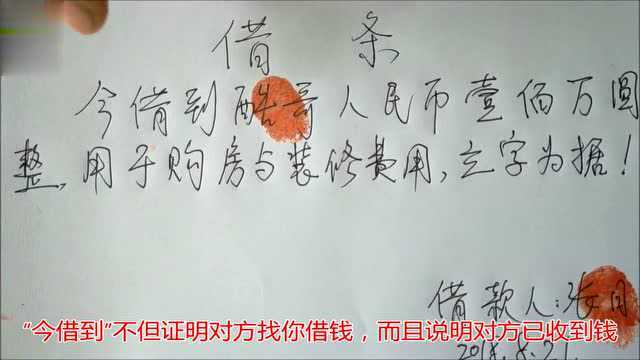 借 条
今借到酷哥人民币壹佰万圆
整,用于购房与装修费用,立字为据!
借款人:张月
"今借到"不但证明对方找你借钱,而且说明对方已收到钱